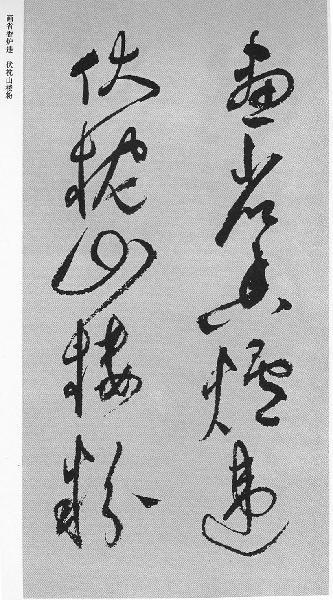 画省香炉违
伏枕山楼粉
画省香炉违 伏枕山楼粉